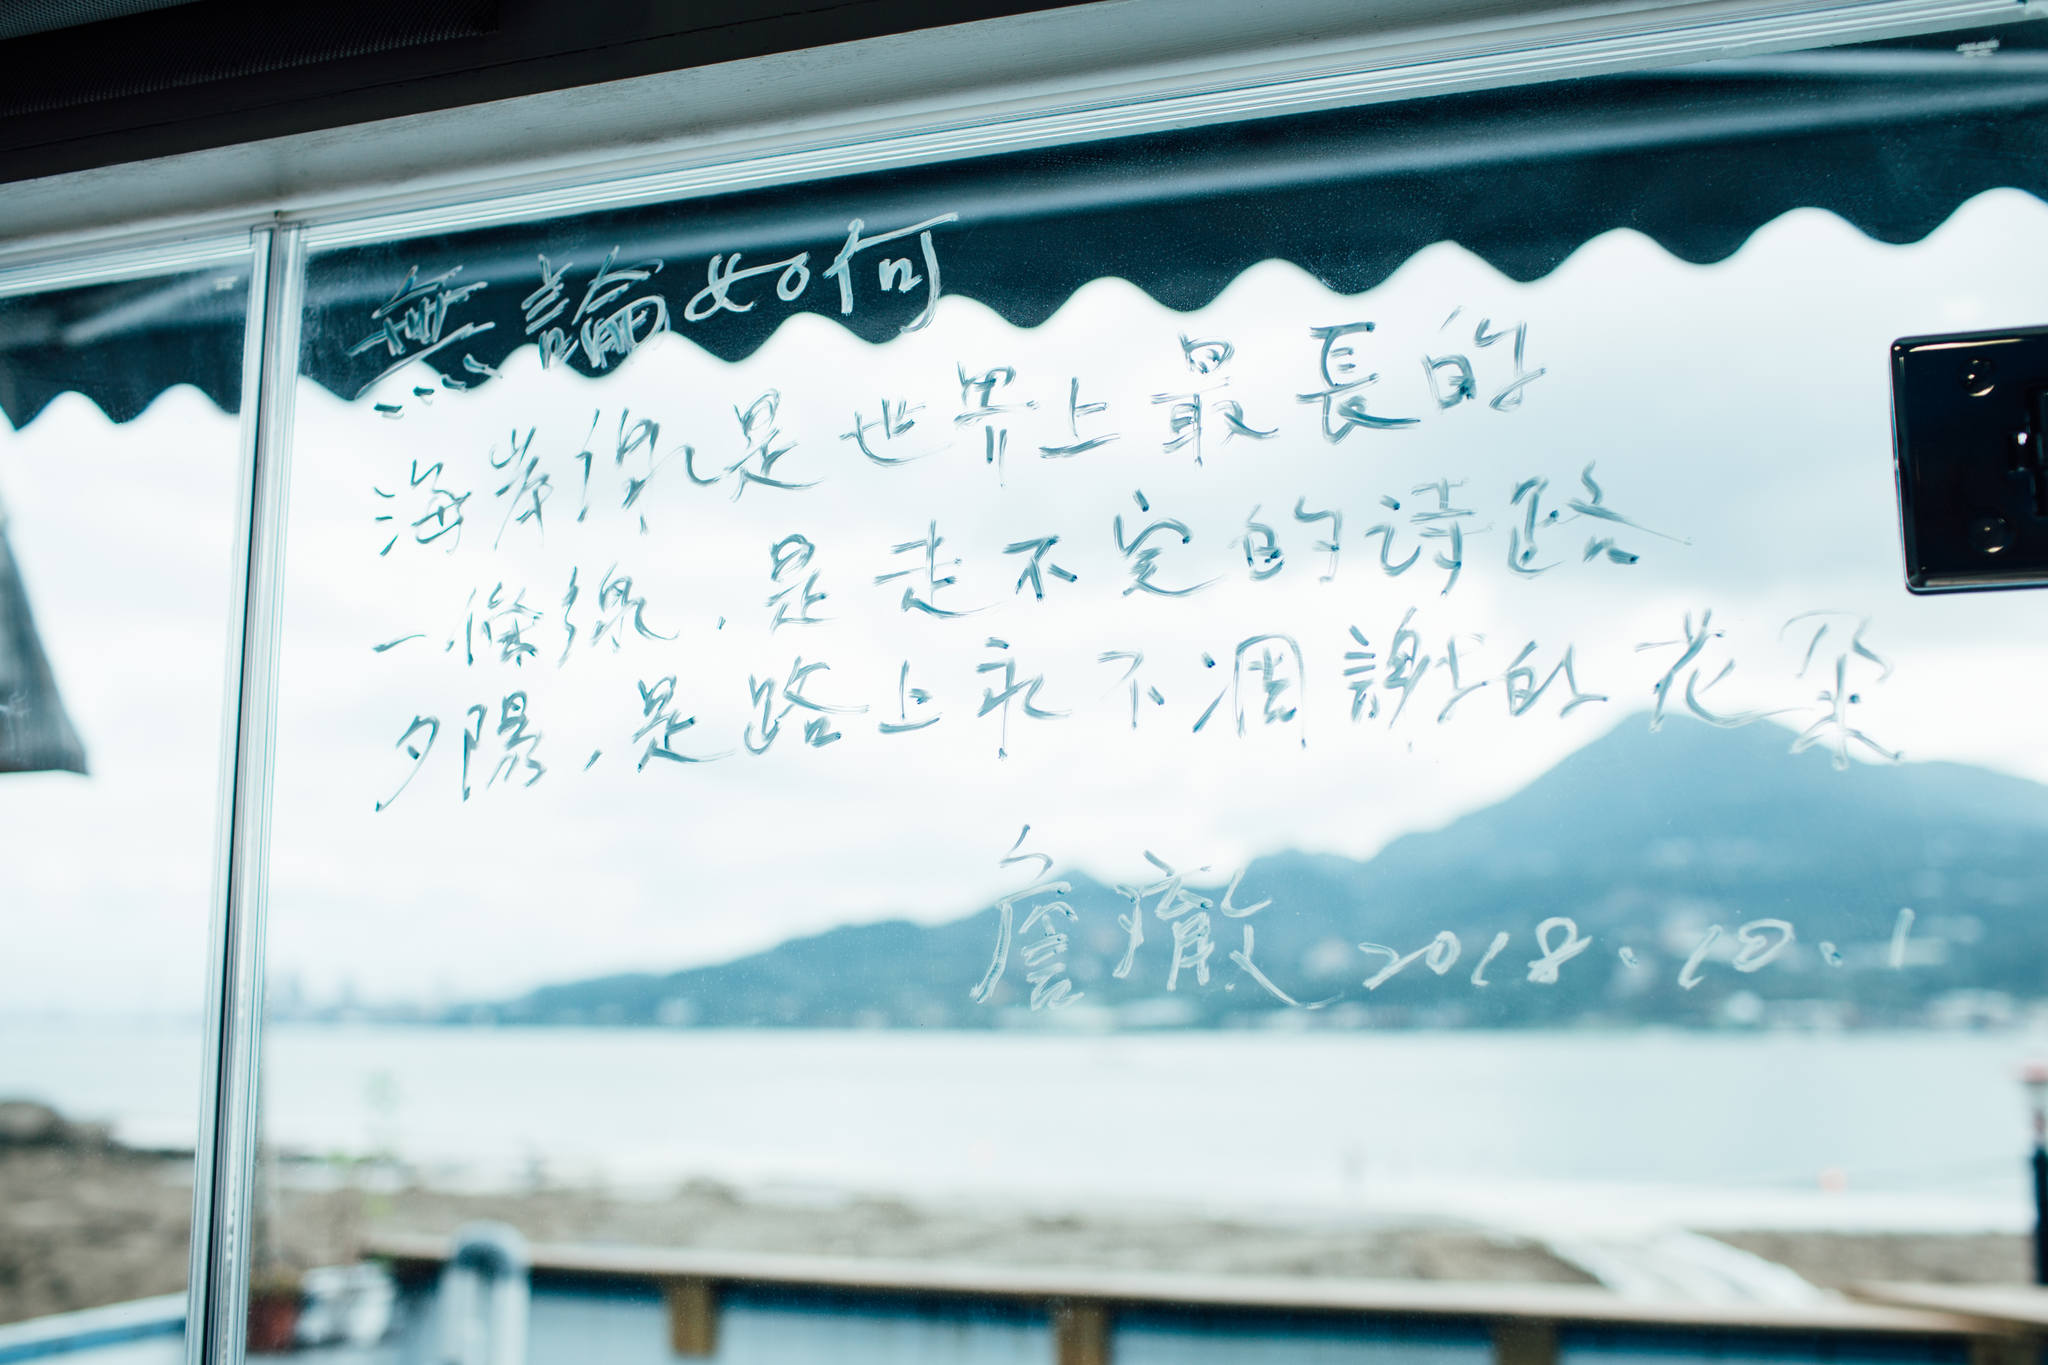 無論如何
海岸線是世界上最長的
一條線,是走不完的詩路
夕陽,是路上永不凋謝的花朵
詹澈 2018.10.1